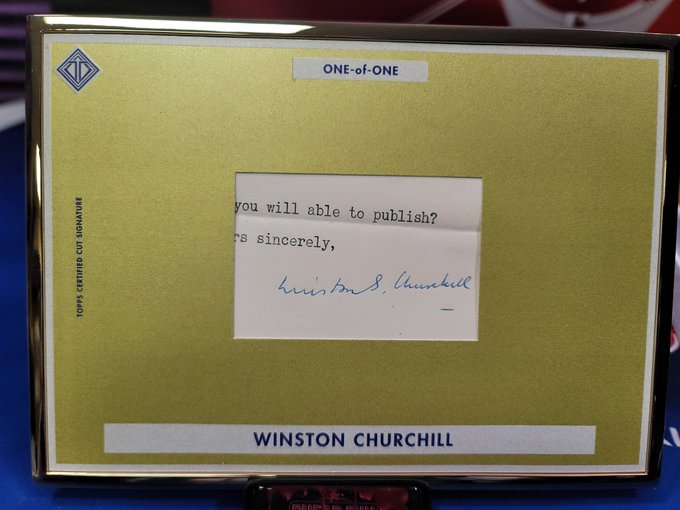 ONE-of-ONE
TOPPS CERTIFIED CUT SIGNATURE
you will able to publish?
rs sincerely,
Winston S. Churchill
WINSTON CHURCHILL